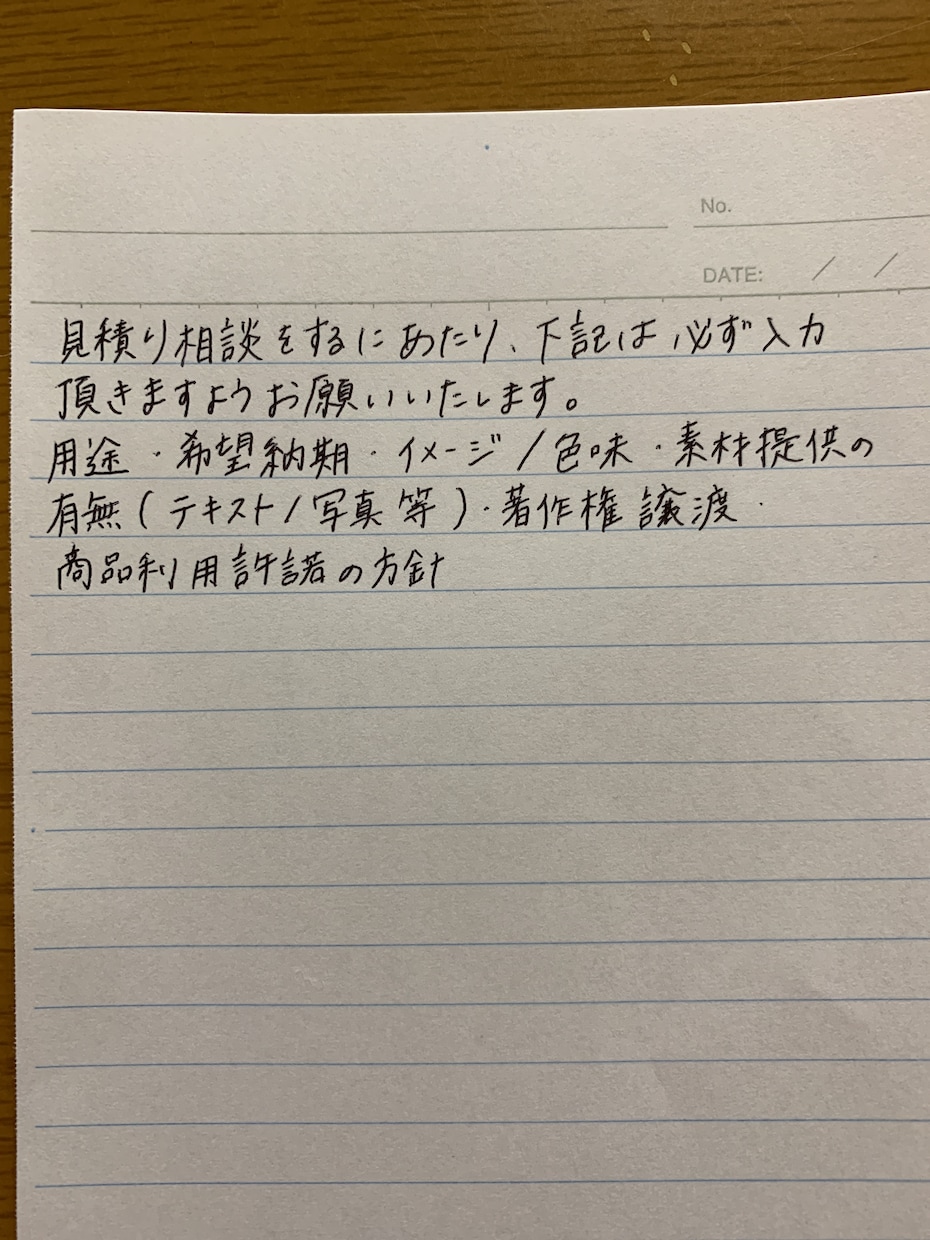 No.
DATE: / /
見積り相談をするにあたり、下記は必ず入力
頂きますようお願いいたします。
用途・希望納期・イメージ/色味・素材提供の
有無(テキスト/写真等)・著作権譲渡・
商品利用許諾の方針